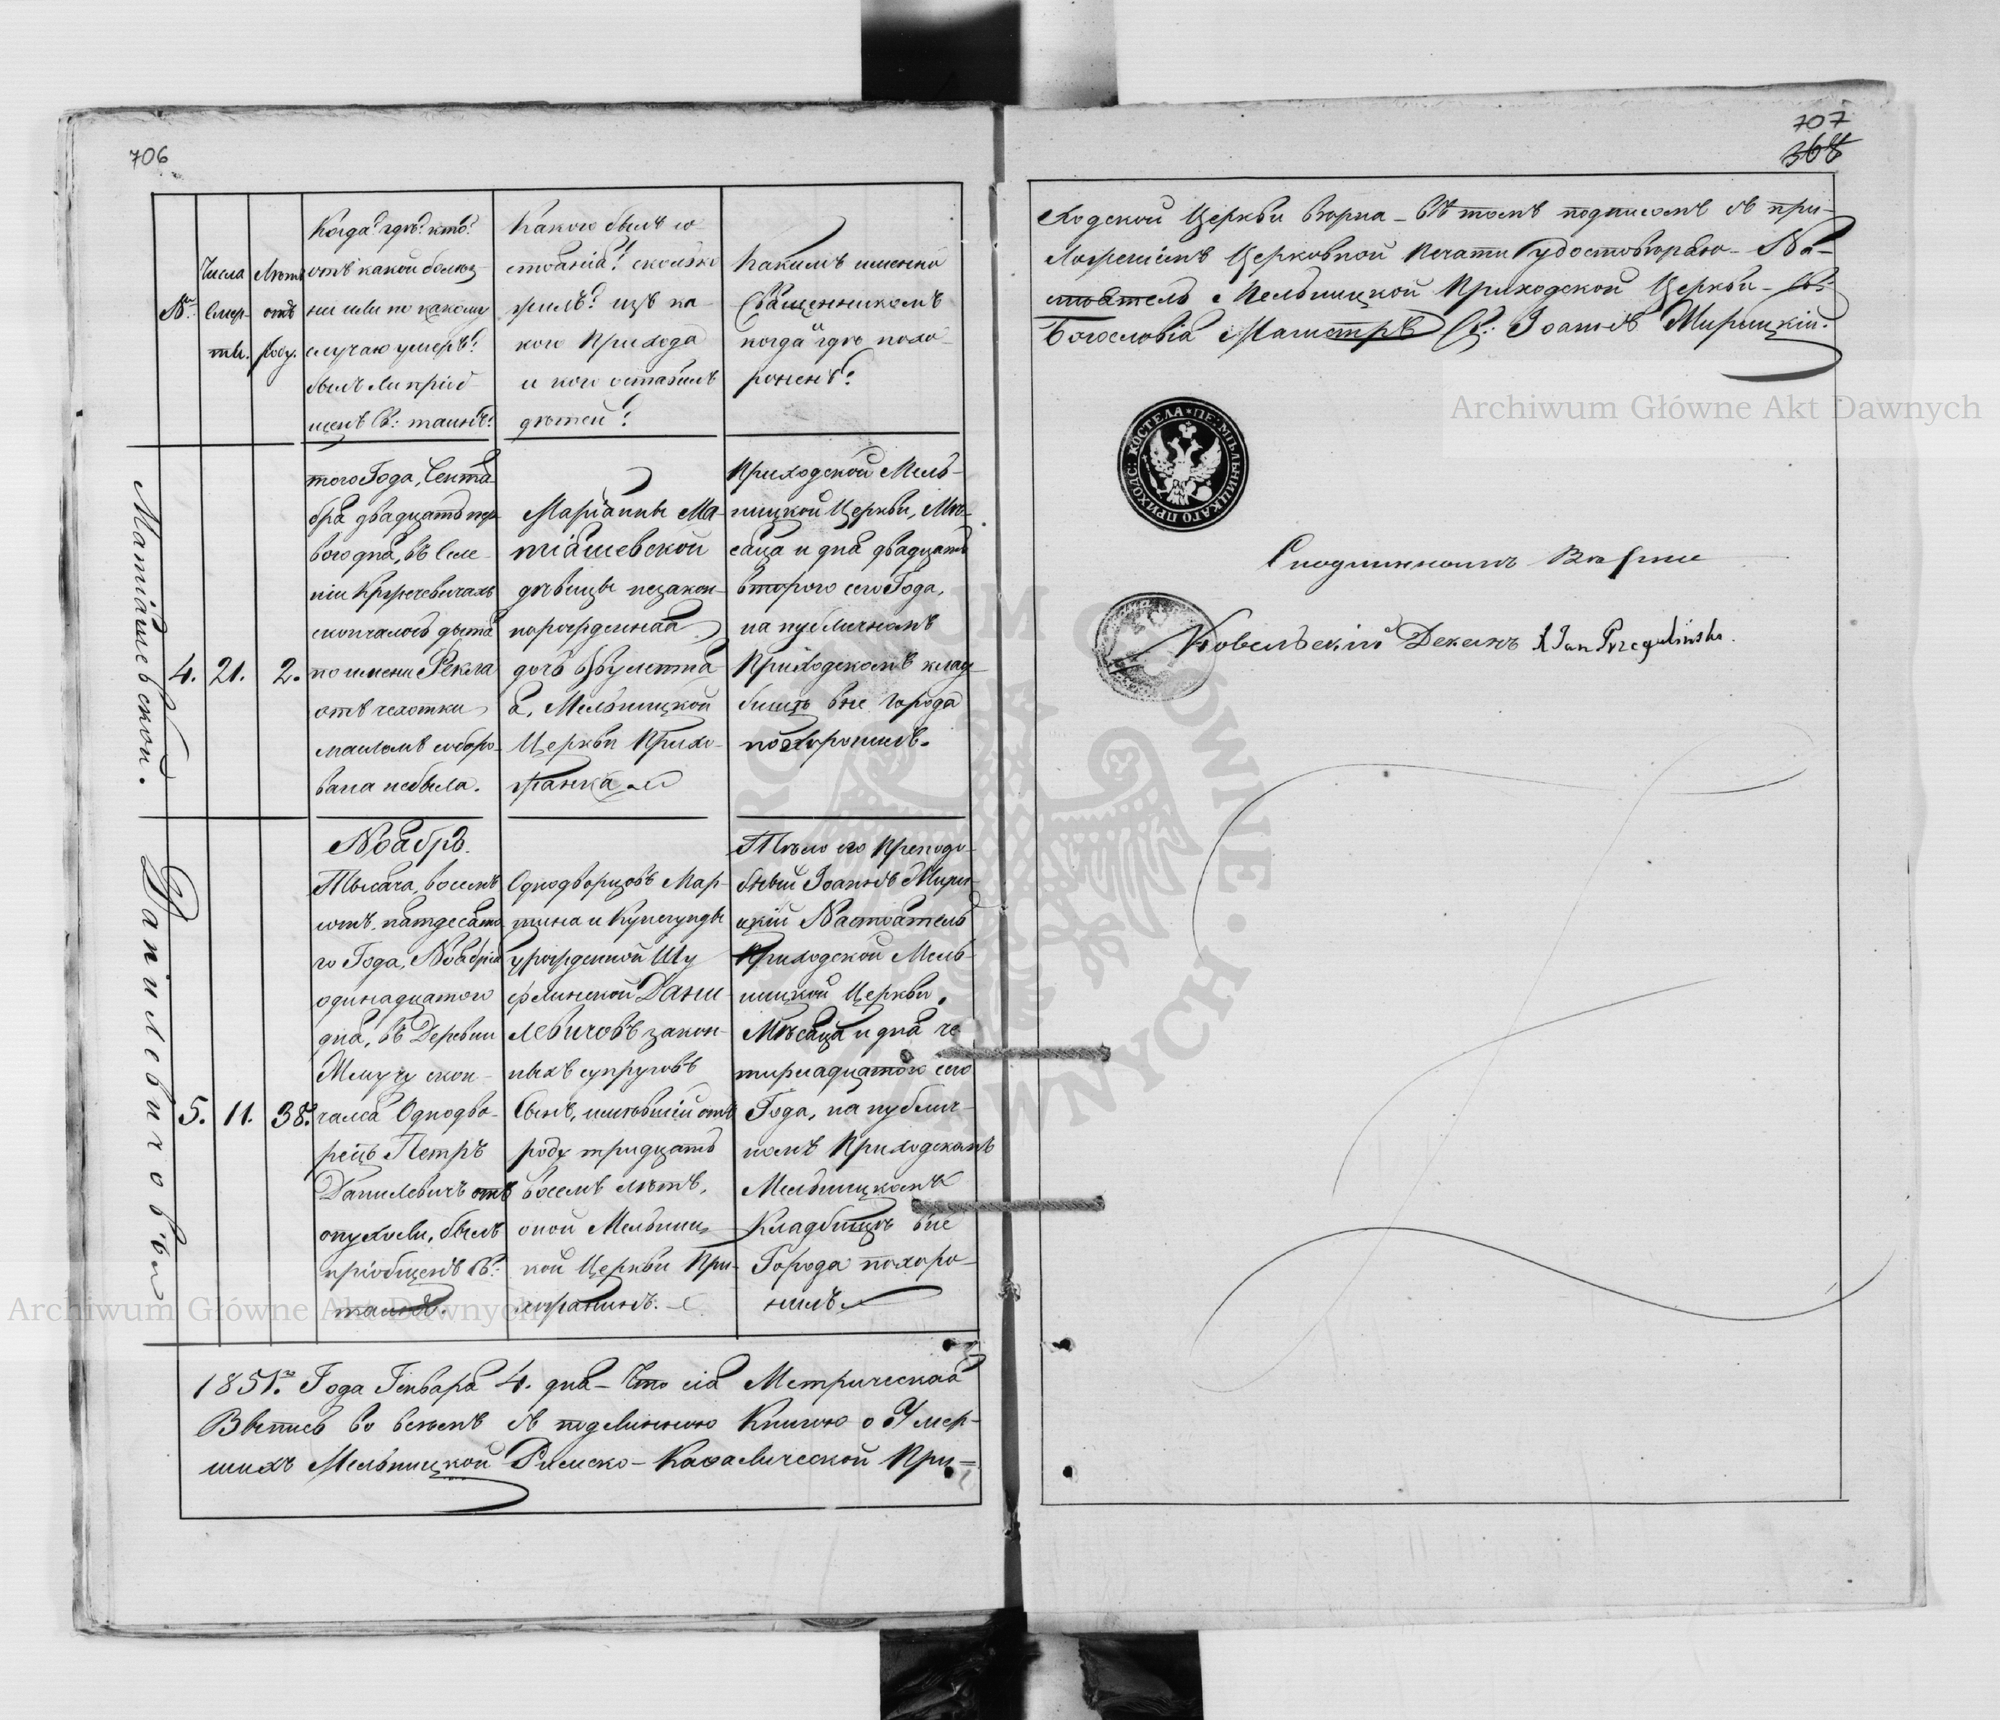 706
№.
Числа
Смер-
ти.
Лѣта
отъ
роду.
Когда? гдѣ? кто?
отъ какой болѣз-
ни или по какому
случаю умеръ?
былъ ли пріоб-
щенъ Св: таинъ?
Какого былъ со-
стоянія? сколько
жилъ? изъ ка-
кого Прихода
и кого оставилъ
дѣтей?
Какимъ именно
Священникомъ
когда и гдѣ похо-
роненъ?
Матіашевской.
4.
21.
2.
того Года, Сентя
бря двадцать пер-
вого дня, въ Селе-
ніи
скончалось дитя
по имени Фекла
отъ чахотки
масломъ соборо-
вана не была.
Маріанны Ма-
тіашевской
дѣвицы незакон-
норожденная
дочь двулѣтня-
я, Мельницкой
Церкви Прихо-
жанка
Приходской Мель-
ницкой Церкви, Мѣ-
сяца и дня двадцать
второго сего Года,
на публичномъ
Приходскомъ клад-
бищѣ внѣ города
похоронилъ.
Даниловичовъ
5.
11.
38.
Ноябрь.
Тысяча, восемь
сотъ, пятдесята-
го Года, Ноября
одинадцатого
дня, въ Деревни
скон-
чался Однодво-
рецъ Петръ
Данилевичъ отъ
опухоли, былъ
пріобщенъ Св:
таинъ.
Однодворцовъ Мар-
тина и Кунегунды
урожденной Шу
флинской Дани-
левичовъ закон-
ныхъ супруговъ
Сынъ, имѣвшій отъ
роду тридцать
восемь лѣтъ,
оной Мельниц-
кой Церкви При-
хожанинъ.
Тѣло его Преподо-
бный Іоаннъ Мири-
цкій Настоятель
Приходской Мель-
ницкой Церкви,
Мѣсяца и дня че-
тырнадцатого сего
Года, на публич-
номъ Приходскомъ
Мельницкомъ
Кладбищѣ внѣ
Города похоро-
нилъ
1851го Года Генваря 4. дня – Что сія Метрическая
Выпись во всѣмъ съ подлинною Книгою о Умер-
шихъ Мельницкой Римско-Каѳалической При-
707
368
ходской Церкви вѣрна – въ томъ подписомъ съ при-
ложеніемъ Церковной Печати удостовѣряю – На-
стоятель Мельницкой Приходской Церкви – Св:
Богословія Магистръ К: Іоаннъ Мирицкій.
ПРИХОДС: КОСТЕЛА * ПЕ: МѢЛЬНИЦКАГО
Archiwum Główne Akt Dawnych
Сподлинномъ Вѣрно
Ковельскій Деканъ X Jan Przegaliński.
Archiwum Główne Akt Dawnych